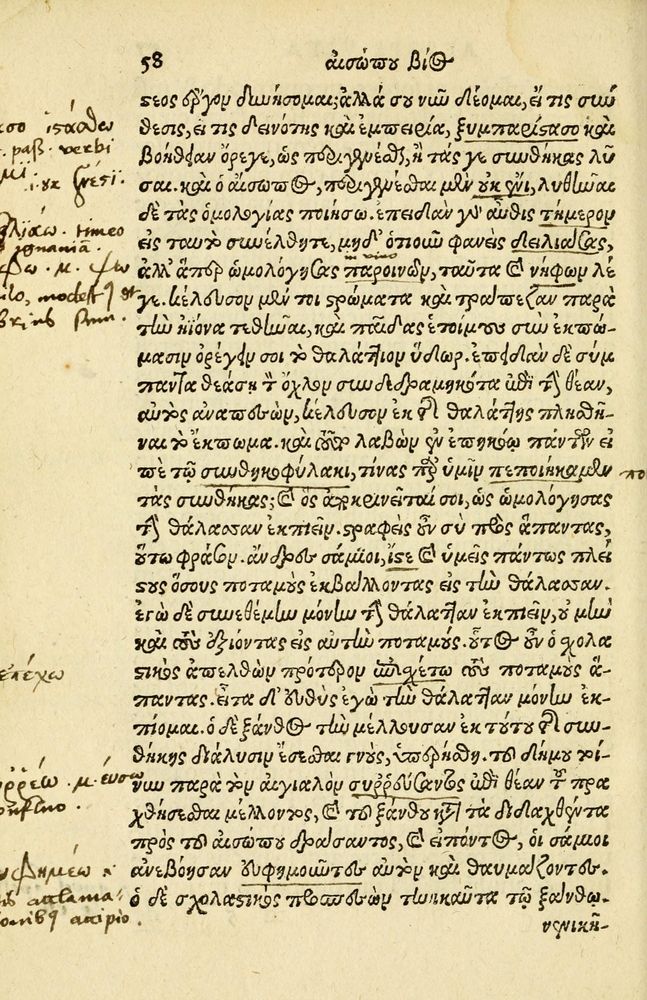 58 αἰσώπου βίος
τεος ἔργον δυνήσομαι; ἀλλὰ σου νῦν δέομαι, εἴ τις σύν
θεσις, εἴ τις δεινότης καὶ ἐμπειρία, ξυμπαρίστασο καὶ
βοήθειαν ὄρεγε, ὡς περιγενέσθαι, ἢ τάς γε συνθήκας λῦ
σαι. καὶ ὁ αἴσωπος, περιγενέσθαι μὲν οὐκ ἔνι, λυθῆναι
δὲ τὰς ὁμολογίας ποιήσω. ἐπειδὰν γοῦν αὖθις τήμερον
εἰς ταυτὸ συνέλθητε, μηδ' ὁτιοῦν φανεὶς δειλιάσας,
ἀλλ' ἅπερ ὡμολόγησας παροινῶν, ταῦτα καὶ νήφων λέ
γε. κέλευσον μέν τοι στρώματα καὶ τράπεζαν παρὰ
τὴν ἠϊόνα τεθῆναι, καὶ παῖδας ἑτοίμους σὺν ἐκπώ-
μασιν ὀρέγειν σοι τὸ θαλάττιον ὕδωρ. ἐπειδὰν δὲ σύμ
παντα θεάσῃ τὸν ὄχλον συνδεδραμηκότα ἐπὶ τὴν θέαν,
αὐτὸς ἀναπεσὼν, κέλευσον ἐκ τῆς θαλάττης πλησθῆ-
ναι τὸ ἔκπωμα. καὶ τοῦτο λαβὼν ἐν ἐπηκόῳ πάντων εἰ
πὲ τῷ συνθηκοφύλακι, τίνας πρὸς ὑμῖν πεποιήκαμεν
τὰς συνθήκας; καὶ ὃς ἀποκρινεῖταί σοι, ὡς ὡμολόγησας
τὴν θάλασσαν ἐκπιεῖν. στραφεὶς οὖν σὺ πρὸς ἅπαντας,
οὕτω φράσον. ἄνδρες σάμιοι, ἴστε καὶ ὑμεῖς πάντως πλεί
στους ὅσους ποταμοὺς ἐκβάλλοντας εἰς τὴν θάλασσαν.
ἐγὼ δὲ συνεθέμην μόνην τὴν θάλατταν ἐκπιεῖν, οὐ μὴν
καὶ τοὺς ἐξιόντας εἰς αὐτὴν ποταμούς. οὗτος οὖν ὁ σχολα
στικὸς ἀπελθὼν πρότερον ἐπισχέτω τοὺς ποταμοὺς ἅ-
παντας. εἶτα δ' εὐθὺς ἐγὼ τὴν θάλατταν μόνην ἐκ-
πίομαι. ὁ δὲ ξάνθος τὴν μέλλουσαν ἐκ τούτου τῆς συν-
θήκης διάλυσιν ἔσεσθαι γνοὺς, ὑπερήσθη. τοῦ δήμου τοί-
νυν παρὰ τὸν αἰγιαλὸν συῤῥεύσαντος ἐπὶ θέαν τοῦ πρα
χθήσεσθαι μέλλοντος, καὶ τοῦ ξάνθου κατὰ τὰ διδαχθέντα
πρὸς τοῦ αἰσώπου δράσαντος, καὶ εἰπόντος, οἱ σάμιοι
ἀνεβόησαν εὐφημοῦντες αὐτὸν καὶ θαυμάζοντες.
ὁ δὲ σχολαστικὸς προσπεσὼν τηνικαῦτα τῷ ξάνθῳ,
νενικῆ-
timeo
in vino
ἐπέχω
confluo.
accipio.